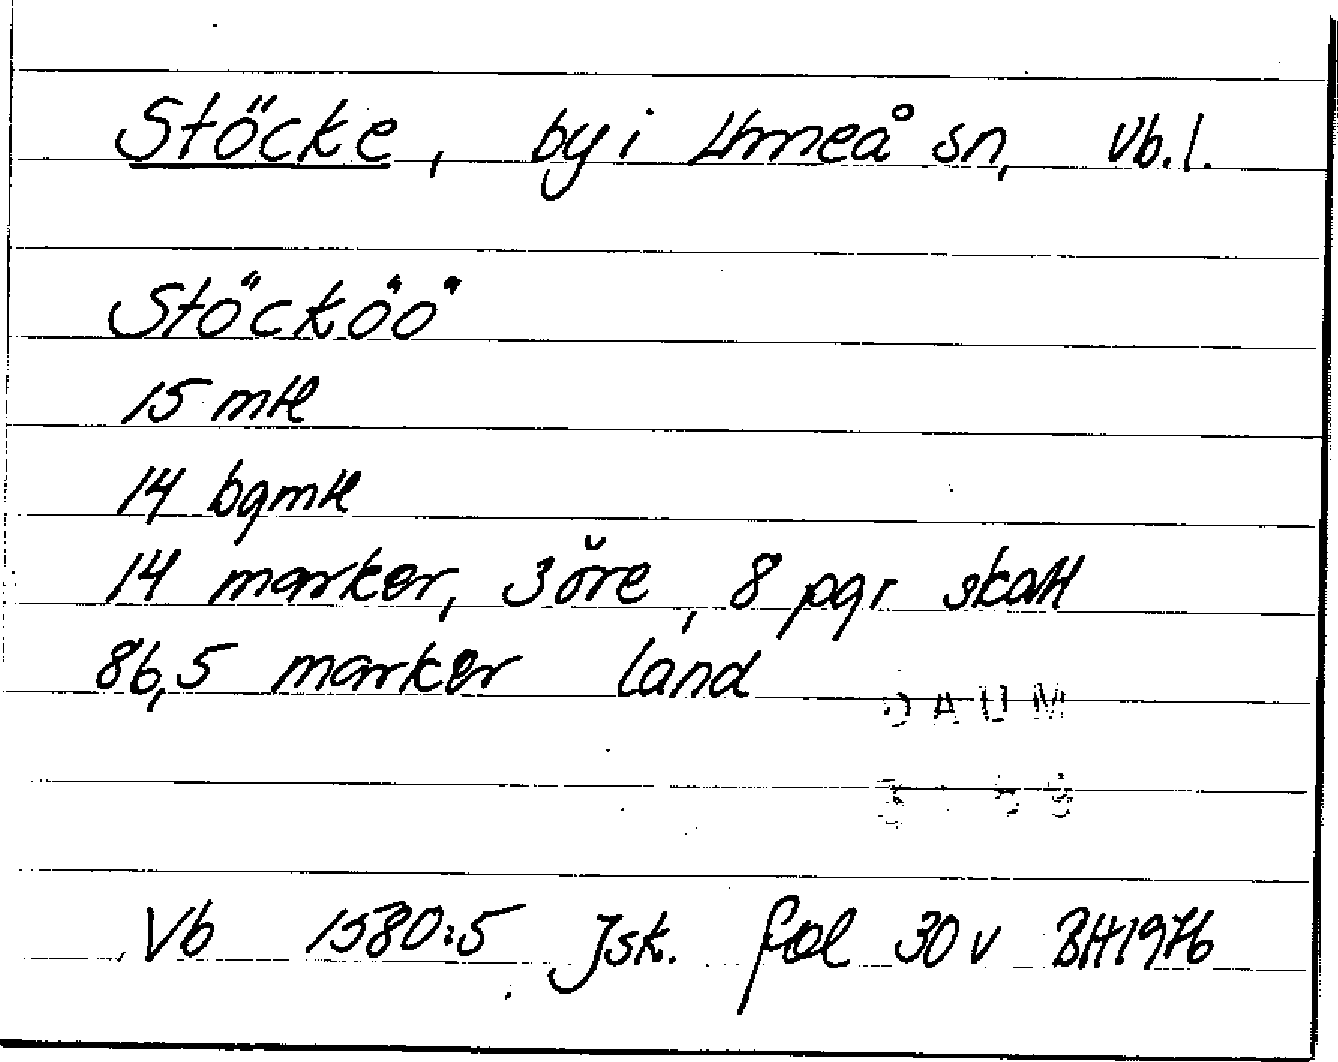 Stöcke, by i Umeå sn, Vb.l.
Stöcköö
15 mtl
14 bgmtl
14 marker, 3 öre, 8 pgr skatt
86,5 marker land
DAUM
Vb 1580:5 Jsk. fol 30v BH1976